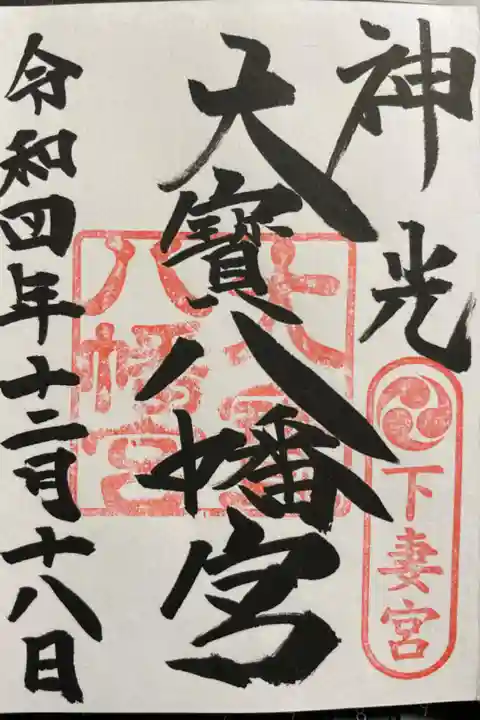 神光
下妻宮
大寳八幡宮
大寳八幡宮
令和四年十二月十八日